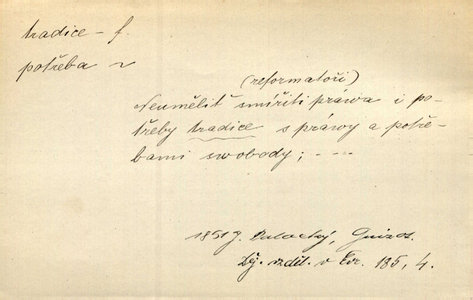 tradice – f.
potřeba ~
(reformatoři)
Neumělíť smířiti práwa i po-
třeby tradice s práwy a potře-
bami swobody; – – –
1851 J. Palacký, Guizot.
Děj. vzděl. v Evr. 185, 4.